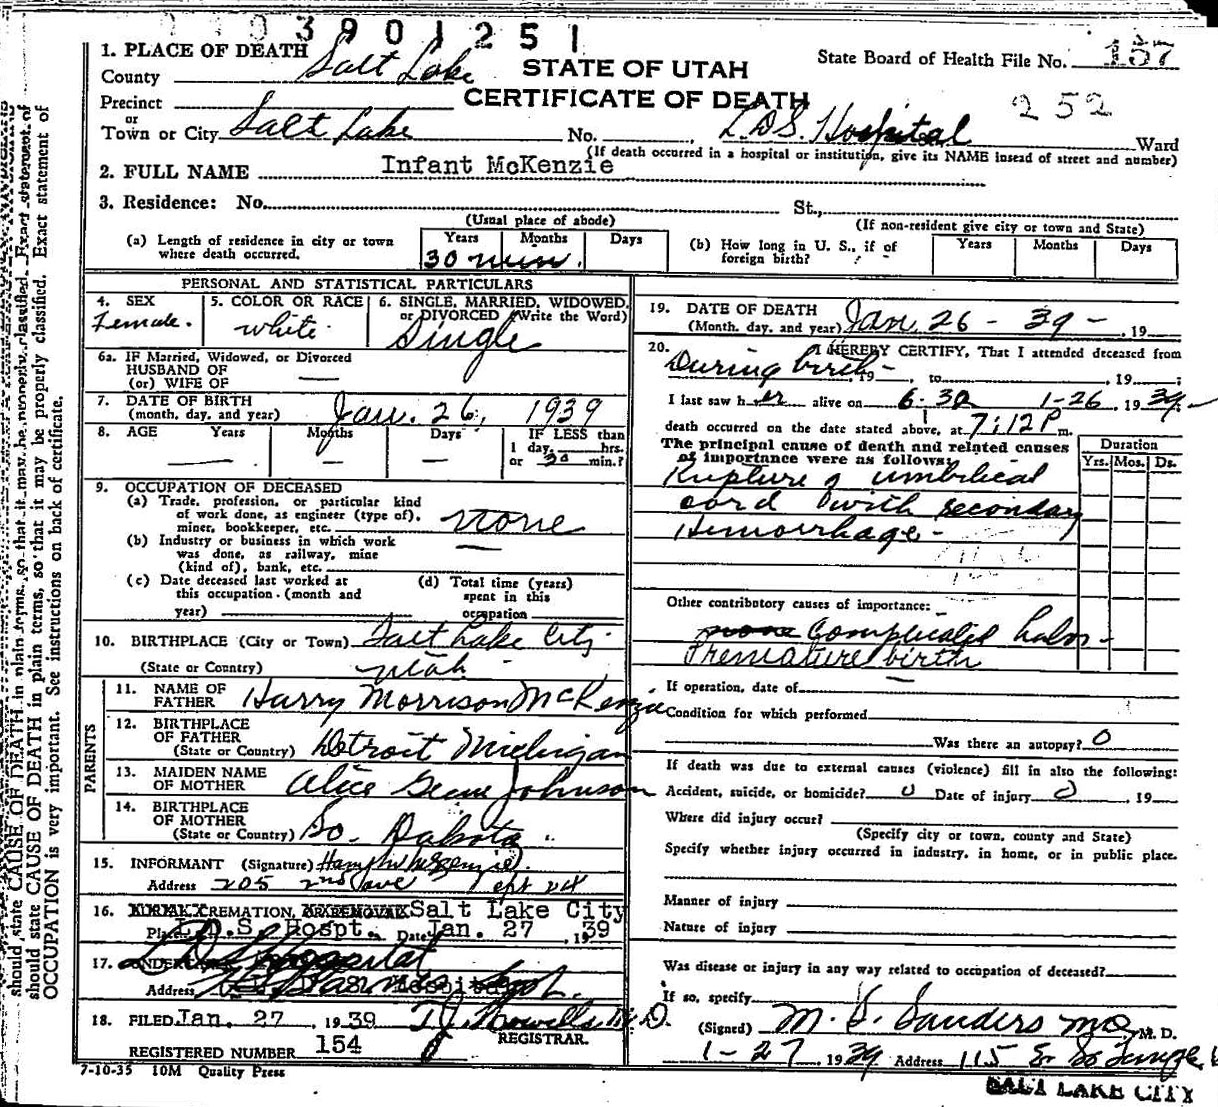 3901251
1. PLACE OF DEATH
County Salt Lake
STATE OF UTAH
State Board of Health File No. 157
Precinct
CERTIFICATE OF DEATH
252
or
Town or City Salt Lake No. , L.D.S. Hospital Ward
(If death occurred in a hospital or institution, give its NAME insead of street and number)
2. FULL NAME Infant McKenzie
3. Residence: No. St.,
(Usual place of abode)
(If non-resident give city or town and State)
(a) Length of residence in city or town where death occurred.
Years Months Days
30 min.
(b) How long in U. S., if of foreign birth?
Years Months Days
PERSONAL AND STATISTICAL PARTICULARS
4. SEX
Female.
5. COLOR OR RACE
white
6. SINGLE, MARRIED, WIDOWED, or DIVORCED (Write the Word)
Single
6a. IF Married, Widowed, or Divorced
HUSBAND OF
(or) WIFE OF —
7. DATE OF BIRTH
(month, day, and year) Jan. 26, 1939
8. AGE Years Months Days
IF LESS than
1 day, hrs.
or 30 min.?
9. OCCUPATION OF DECEASED
(a) Trade, profession, or particular kind
of work done, as engineer (type of),
miner, bookkeeper, etc. none
(b) Industry or business in which work
was done, as railway, mine
(kind of), bank, etc. —
(c) Date deceased last worked at
this occupation (month and
year)
(d) Total time (years)
spent in this
occupation
10. BIRTHPLACE (City or Town) Salt Lake City
(State or Country) Utah
PARENTS
11. NAME OF FATHER Harry Morrison McKenzie
12. BIRTHPLACE OF FATHER
(State or Country) Detroit Michigan
13. MAIDEN NAME OF MOTHER Alice Johnson
14. BIRTHPLACE OF MOTHER
(State or Country) So. Dakota
15. INFORMANT (Signature) Harry McKenzie
Address 205 2nd Ave
16. CREMATION, Salt Lake City
L.D.S. Hospt. Date Jan. 27, 1939
17.
Address
18. FILED Jan. 27, 1939 M.D.
REGISTRAR.
REGISTERED NUMBER 154
7-10-35 10M Quality Press
19. DATE OF DEATH
(Month, day, and year) Jan 26 - 39 - , 19
20. I HEREBY CERTIFY, That I attended deceased from
During birth , 19 , to , 19 ;
I last saw h er alive on 6:30 1-26, 1939
death occurred on the date stated above, at 7:12 P m.
The principal cause of death and related causes
of importance were as follows:
Duration
Yrs. Mos. Ds.
Rupture of umbilical
cord with secondary
Hemorrhage -
Other contributory causes of importance:
none Complicated labor -
Premature birth
If operation, date of
Condition for which performed
Was there an autopsy? 0
If death was due to external causes (violence) fill in also the following:
Accident, suicide, or homicide? 0 Date of injury 0 , 19
Where did injury occur?
(Specify city or town, county and State)
Specify whether injury occurred in industry, in home, or in public place.
Manner of injury
Nature of injury
Was disease or injury in any way related to occupation of deceased?
If so, specify
(Signed) M. S. Sanders MD, M. D.
1-27 1939 Address 115 E. So. Temple
SALT LAKE CITY
should state CAUSE OF DEATH in plain terms, so that it may be properly classified. Exact statement of
should state CAUSE OF DEATH in plain terms, so that it may be properly classified. Exact statement of
OCCUPATION is very important. See instructions on back of certificate.